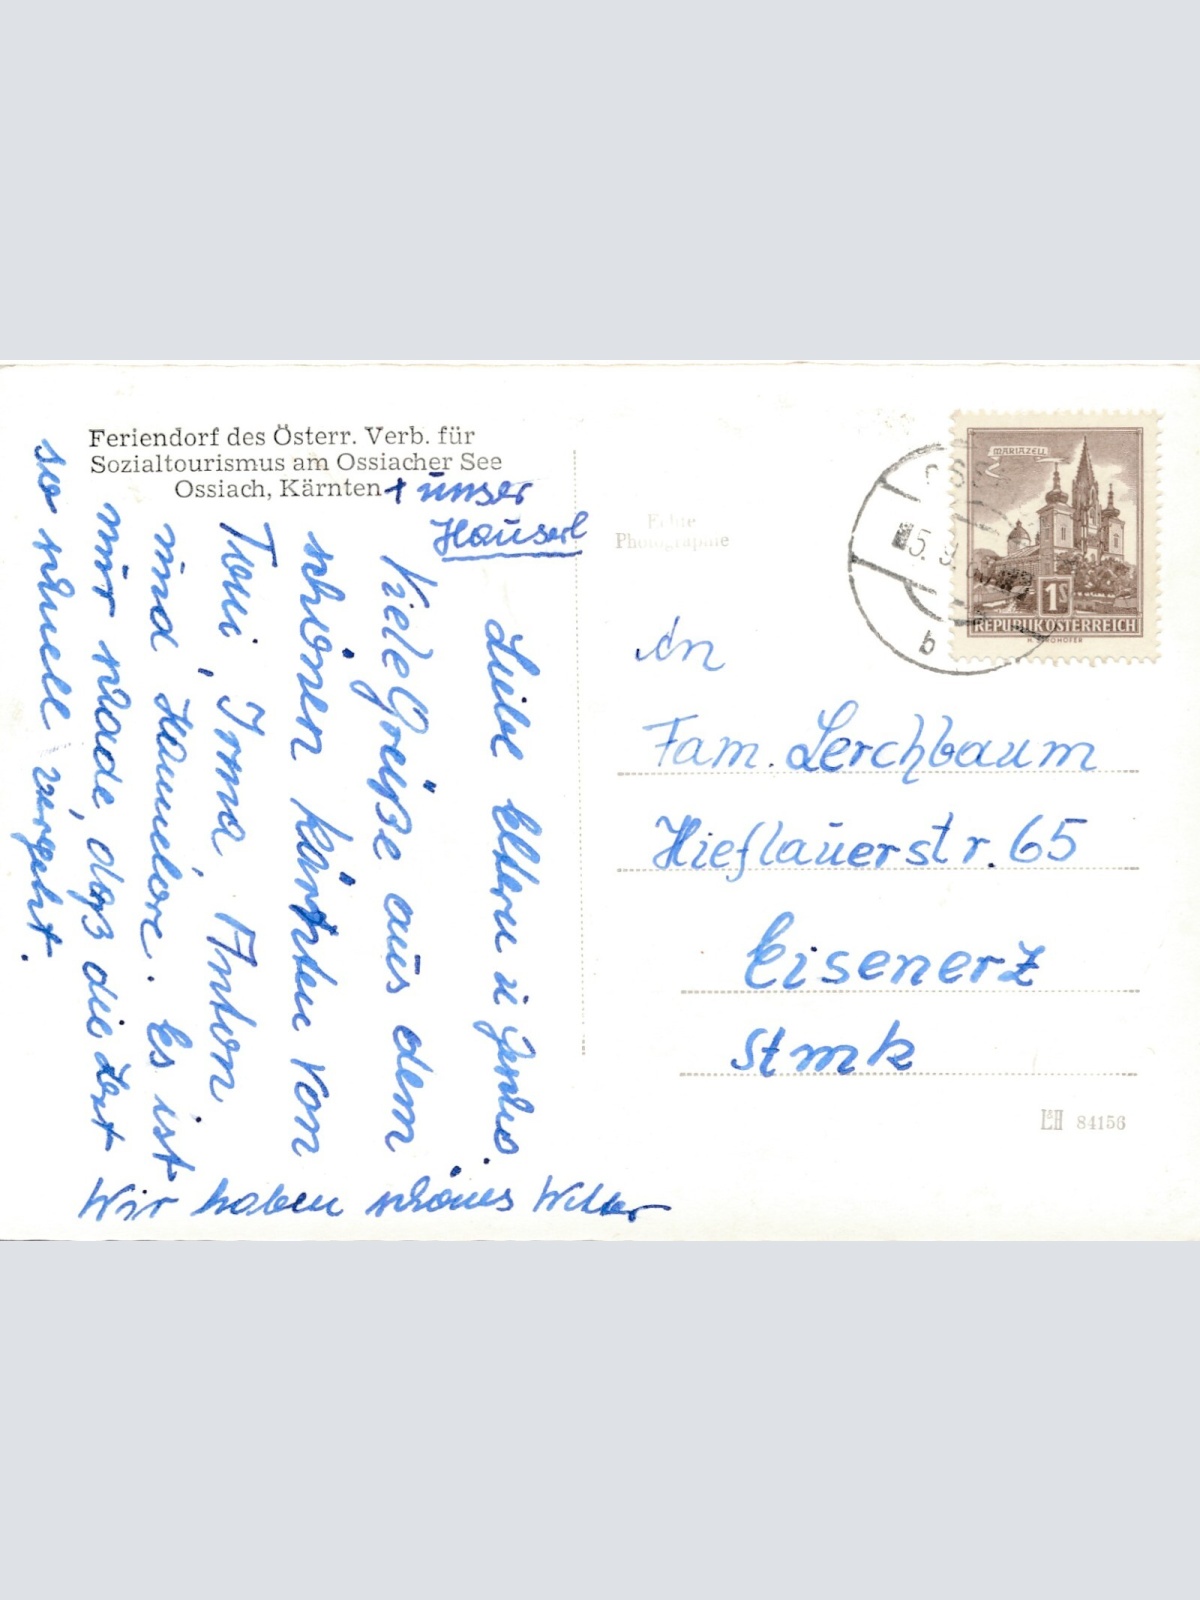 Feriendorf des Österr. Verb. für
Sozialtourismus am Ossiacher See
Ossiach, Kärnten + unser
Hauserl
Liebe Eltern u
Viele Grüße aus dem
schönen Kärnten von
Toni, Irma, Anton
und Hannelore. Es ist
nur schade, daß die Zeit
so schnell vergeht.
Wir haben schönes Wetter
Echte
Photographie
MARIAZELL
1S
REPUBLIK ÖSTERREICH
5. 9.
b
An
Fam. Lerchbaum
Hieflauerstr. 65
Eisenerz
Stmk
84156